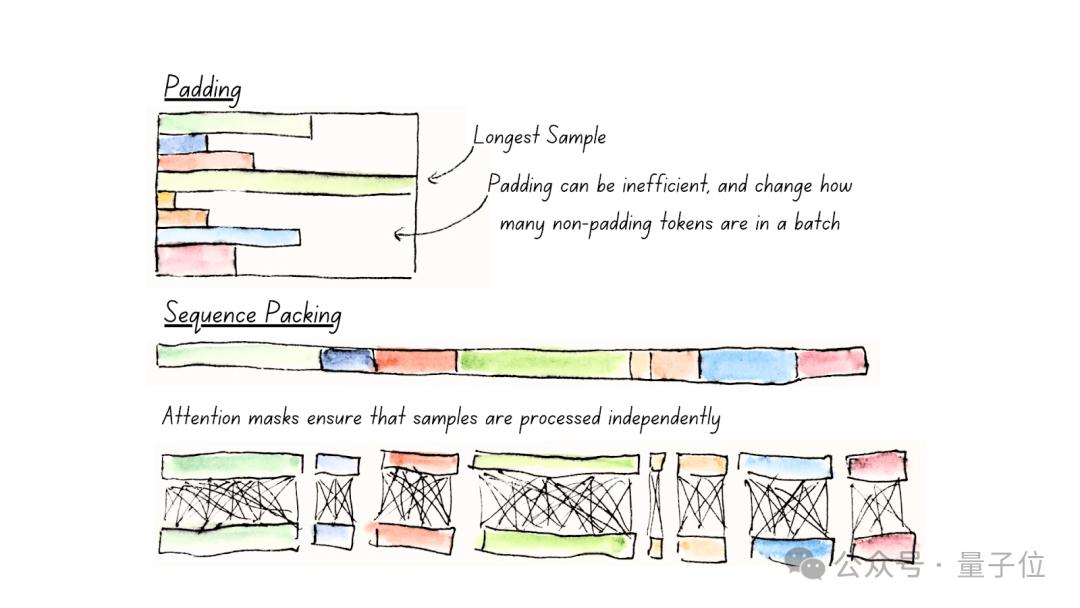 Padding
Longest Sample
Padding can be inefficient, and change how
many non-padding tokens are in a batch
Sequence Packing
Attention masks ensure that samples are processed independently
公众号 · 量子位